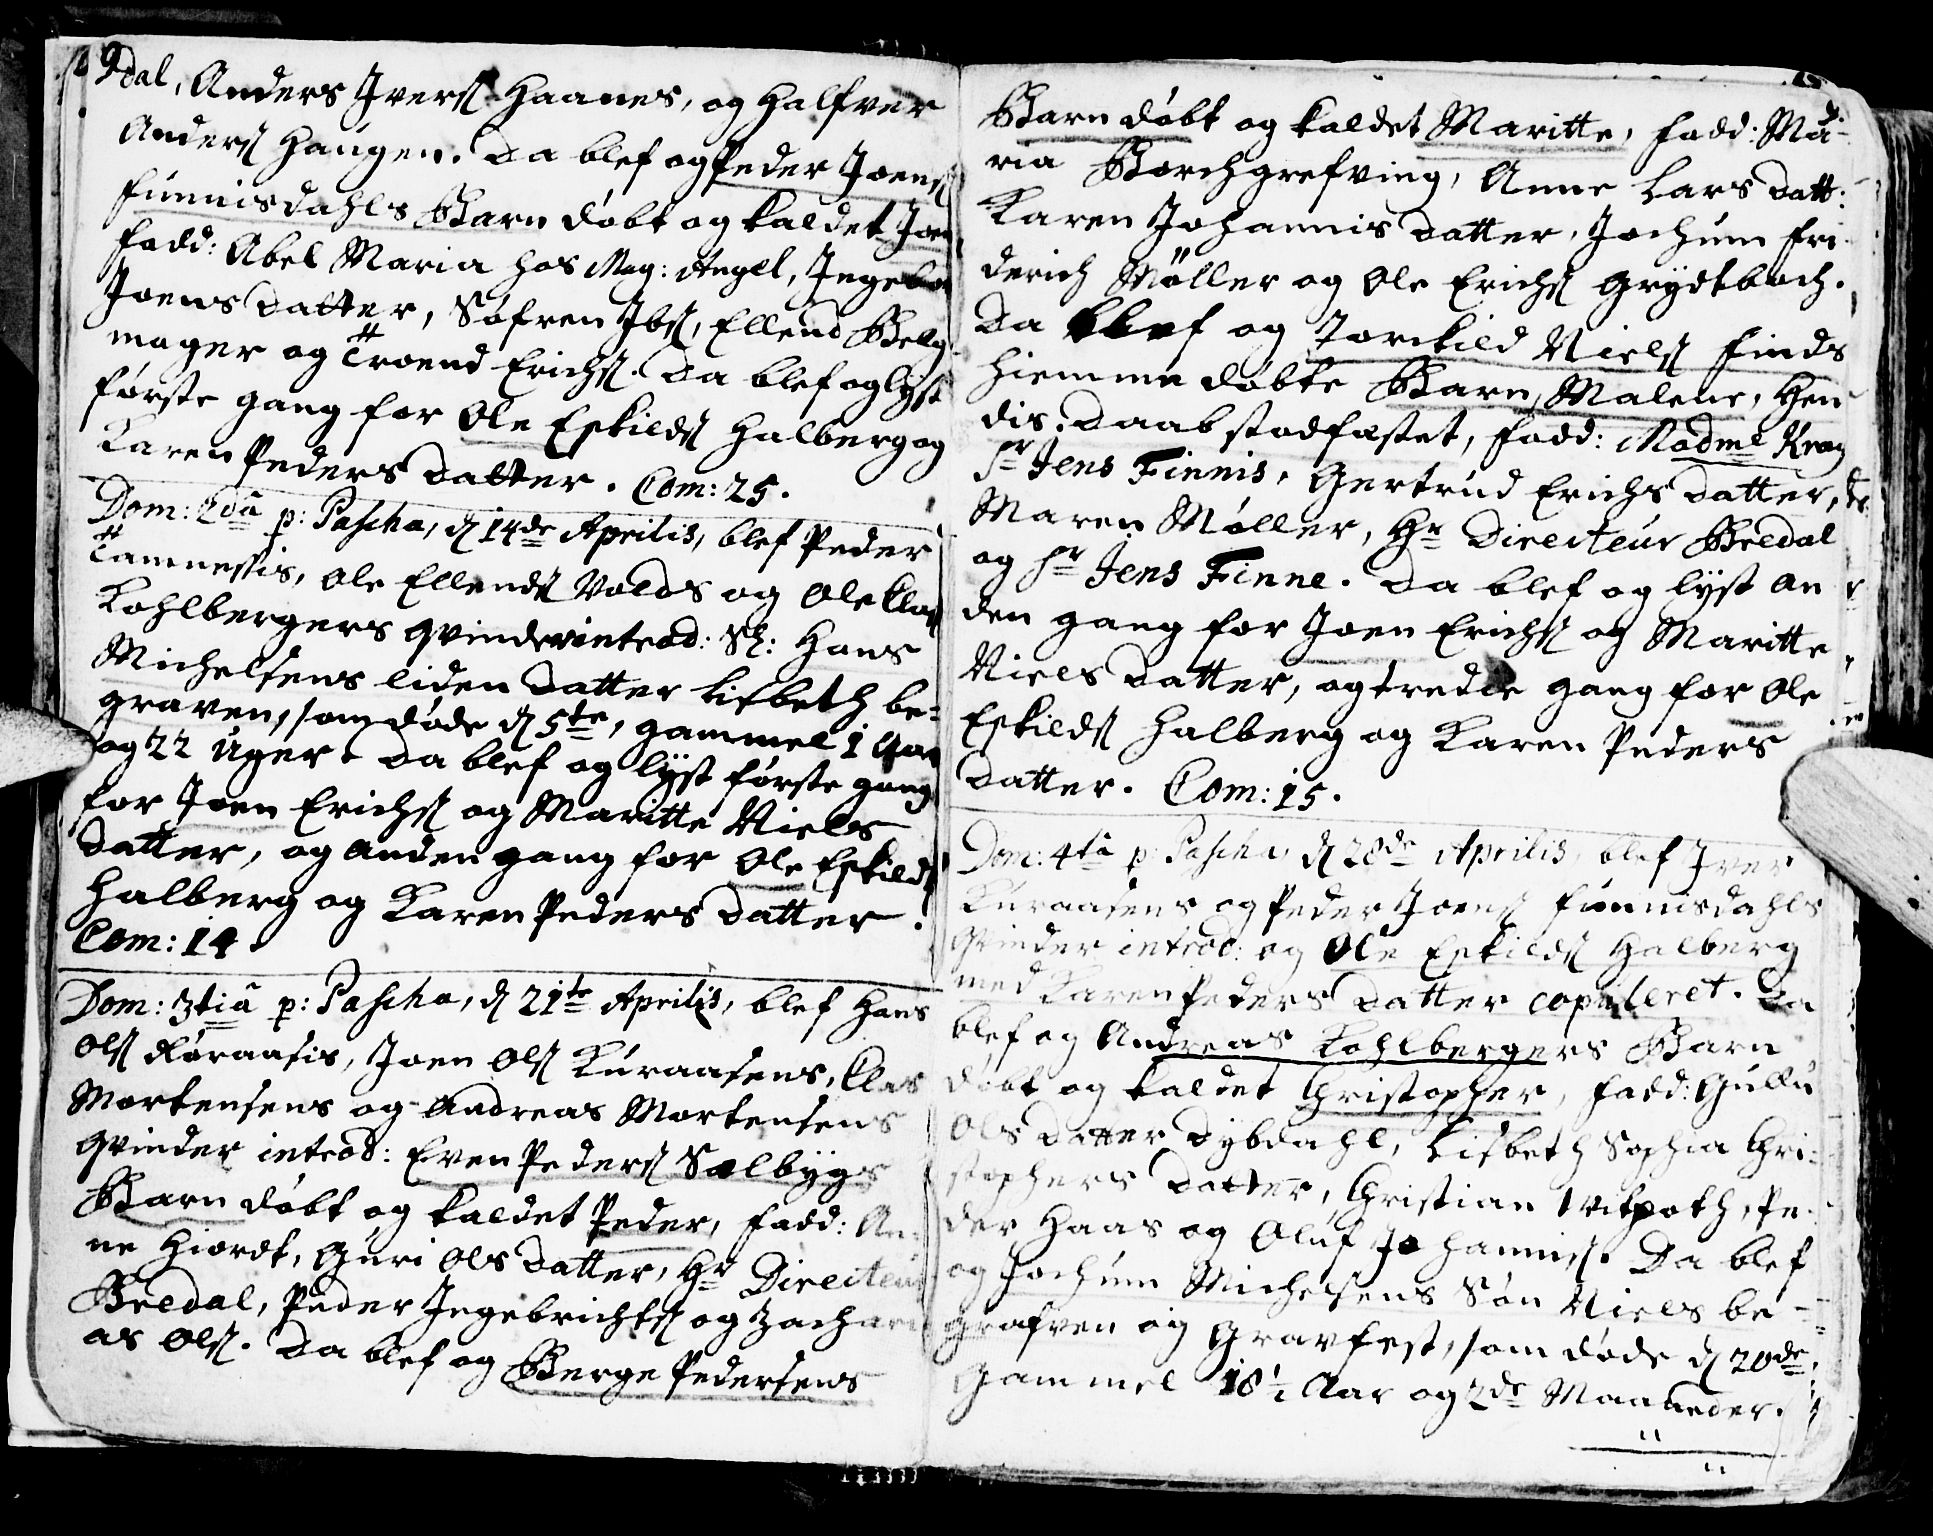 dal, Anders Iverſ Haanes, og Halfver
Anderſ Haugen. Da blef og Peder Joenſ
Funnisdahls Barn döbt og kaldet Joen,
Fadd: Abel Maria hos Mag: Angel, Ingebor
Joens datter, Söfren Ibſ, Ellend Belg-
mager og Troend Erichſ. Da blef og lyst
förste gang for Ole Eskildſ Halberg og
Karen Peders datter. Com: 25.
Dom: 2dâ p: Pascha, d 14de Aprilis, blef Peder
Tamnessis, Ole Ellendſ Volds og Ole Claſ
Kohlbergers qvinder introd: Sl: Hans
Michelsens liden datter Lisbeth be=
graven, som döde d 5te, gammel 1 Aar
og 22 Uger. Da blef og lyst förste gang
for Joen Erichſ og Maritte Niels
datter, og anden gang for Ole Eskildſ
Halberg og Karen Peders datter.
Com: 14.
Dom: 3tiâ p: Pascha, d 21te Aprilis, blef Hans
Olſ Röraasis, Joen Olſ Kuraasens, Clas
Mortensens og Andreas Mortensens
qvinder introd: Even Pederſ Sælbygs
Barn döbt og kaldet Peder, Fadd: An-
ne Hiordt, Guri Ols datter, Hr Directeur
Bredal, Peder Ingebrichtſ og Zachari
as Olſ. Da blef og Berge Pedersens
Barn döbt og kaldet Maritte, Fadd: Ma-
ria Borchgrefving, Anne Lars datt:
Karen Johannis datter, Jochum Fri-
derich Möller og Ole Erichſ Grydtbach.
Da blef og Torckild Nielſ Finds
hiemme döbte Barn, Malene, Hen-
dis daab stadfæstet, Fadd: Madme Krag
Sr Jens Finnis, Gertrud Erichs datter,
Maren Möller, Hr Directeur Bredal
og Sr Jens Finne. Da blef og lyst an
den gang for Joen Erichſ og Maritte
Niels datter, og tredie gang for Ole
Eskildſ Halberg og Karen Peders
datter. Com: 15.
Dom: 4tâ p: Pascha, d 28de Aprilis, blef Iver
Kuraasens og Peder Joenſ Funnisdahls
qvinder introd: og Ole Eskildſ Halberg
med Karen Peders datter copuleret. Da
blef og Andreas Kohlbergers Barn
döbt og kaldet Christopher, Fadd: Gullu
Ols datter Dybdahl, Lisbeth Sophia Chri-
stophers datter, Christian Witpoth, Pe-
der Haas og Oluf Johannisſ. Da blef
og Jochum Michelsens Sön Niels be-
grafven og Gravfest, som döde d 20de,
Gammel 18½ Aar og 2de Maaneder.